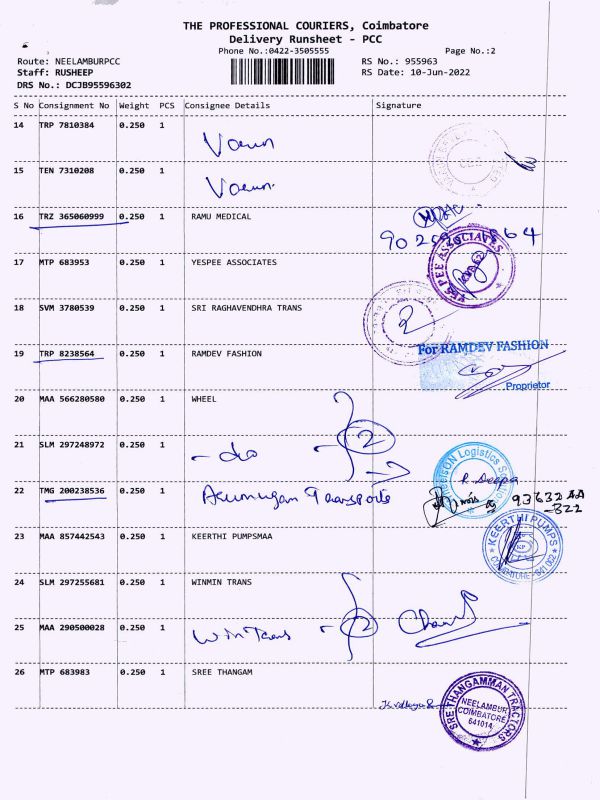 THE PROFESSIONAL COURIERS, Coimbatore
Delivery Runsheet - PCC
Phone No.:0422-3505555 Page No.:2
Route: NEELAMBURPCC RS No.: 955963
Staff: RUSHEEP RS Date: 10-Jun-2022
DRS No.: DCJB95596302
S No Consignment No Weight PCS Consignee Details Signature
14 TRP 7810384 0.250 1 Varun
15 TEN 7310208 0.250 1 Varun
16 TRZ 365060999 0.250 1 RAMU MEDICAL
17 MTP 683953 0.250 1 YESPEE ASSOCIATES
YES PEE ASSOCIATES
18 SVM 3780539 0.250 1 SRI RAGHAVENDHRA TRANS
19 TRP 8238564 0.250 1 RAMDEV FASHION
For RAMDEV FASHION
Proprietor
20 MAA 566280580 0.250 1 WHEEL
21 SLM 297248972 0.250 1 - do 2
Logistics
R. Deepa
22 TMG 200238536 0.250 1 Arumugam Transports
93632 AA
-322
23 MAA 857442543 0.250 1 KEERTHI PUMPSMAA
KEERTHI PUMPS
KP
COIMBATORE - 641 062
24 SLM 297255681 0.250 1 WINMIN TRANS
25 MAA 290500028 0.250 1 Win Trans 2
26 MTP 683983 0.250 1 SREE THANGAM
SRE THANGAMMAN TRACTORS
NEELAMBUR
COIMBATORE
641014